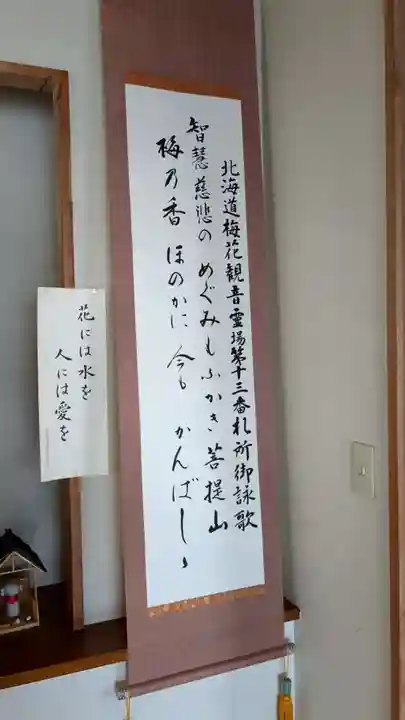 北海道梅花観音霊場第十三番札所御詠歌
智慧慈悲の めぐみもふかき菩提山
梅乃香 ほのかに 今も かんばしゝ
花には水を
人には愛を